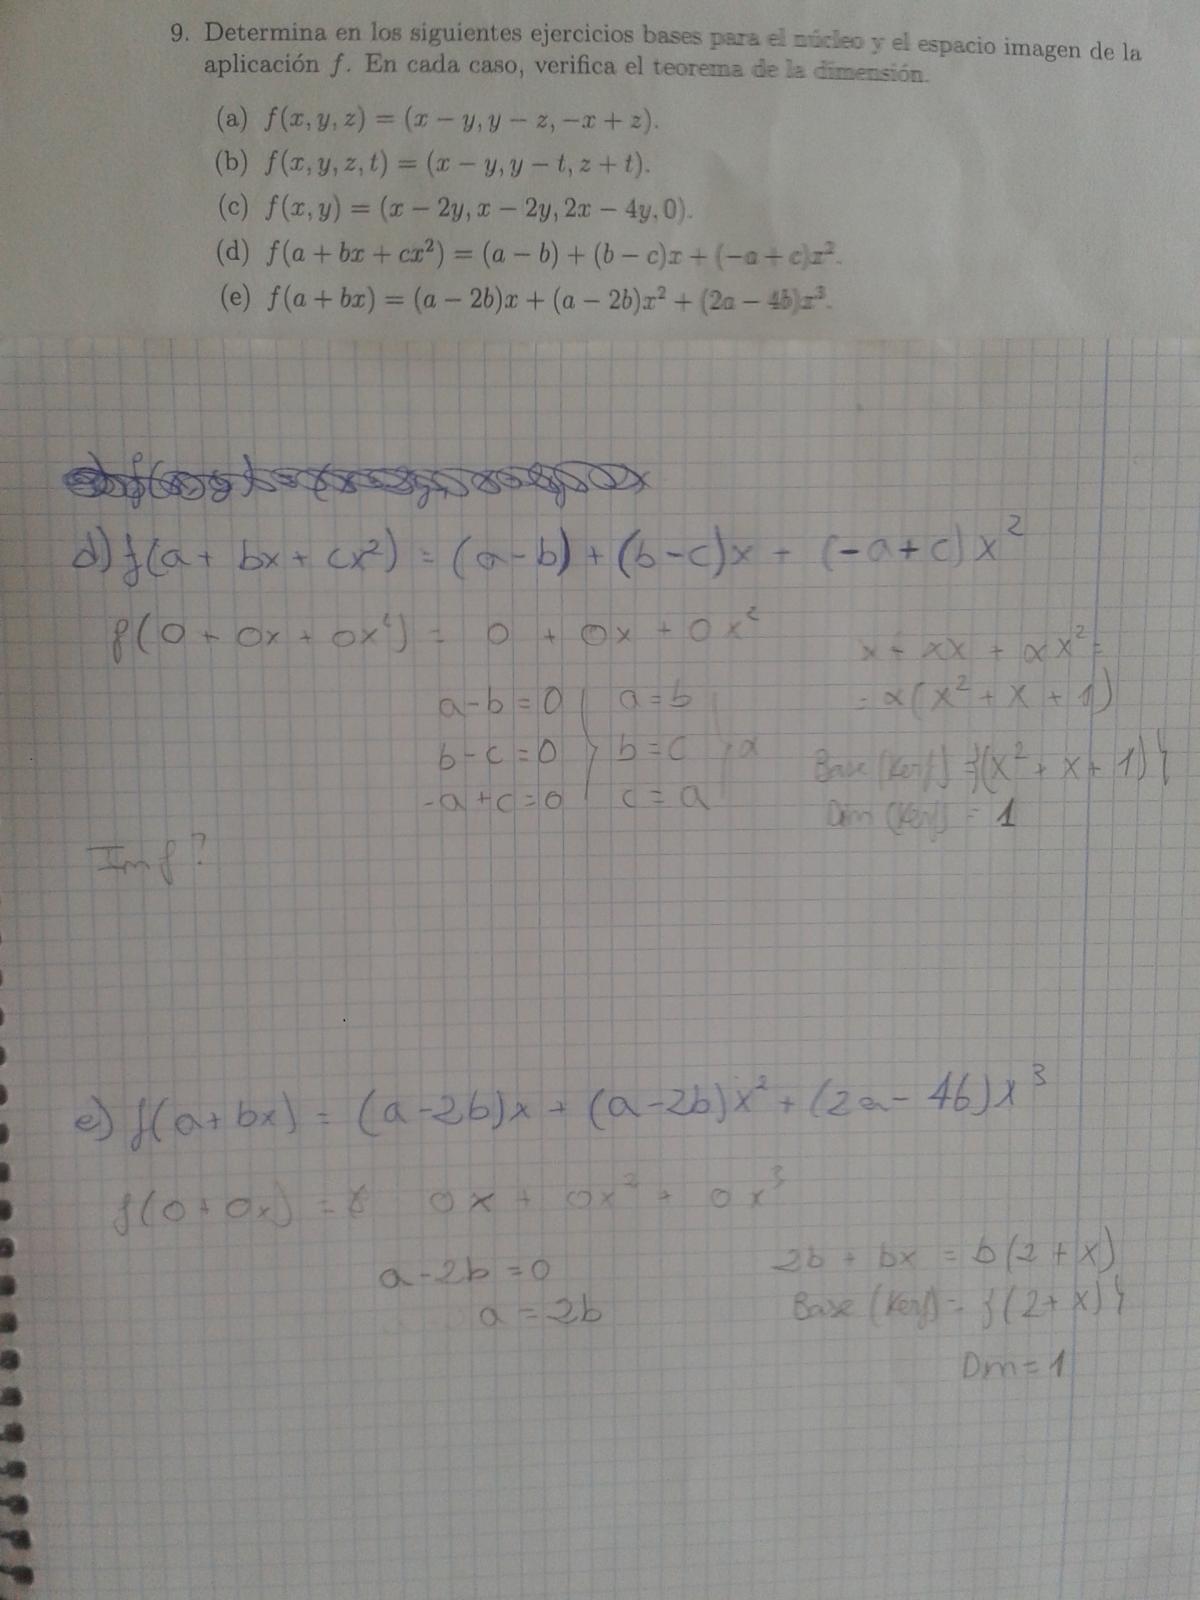 9. Determina en los siguientes ejercicios bases para el núcleo y el espacio imagen de la
aplicación f. En cada caso, verifica el teorema de la dimensión.
(a) f(x, y, z) = (x − y, y − z, −x + z).
(b) f(x, y, z, t) = (x − y, y − t, z + t).
(c) f(x, y) = (x − 2y, x − 2y, 2x − 4y, 0).
(d) f(a + bx + cx²) = (a − b) + (b − c)x + (−a + c)x².
(e) f(a + bx) = (a − 2b)x + (a − 2b)x² + (2a − 4b)x³.
d) f(a + bx + cx²) = (a-b) + (b-c)x + (-a+c)x²
f(0 + 0x + 0x²) = 0 + 0x + 0x²
α + αx + αx² =
= α(x² + x + 1)
a-b=0 a=b
b-c=0 b=c α
-a+c=0 c=a
Base (Kerf) = {(x² + x + 1)}
Dim (Kerf) = 1
Im f?
e) f(a+bx) = (a-2b)x + (a-2b)x² + (2a-4b)x³
f(0+0x) = 0x + 0x² + 0x³
a-2b=0
a=2b
2b + bx = b(2+x)
Base (Kerf) = {(2+x)}
Dm=1